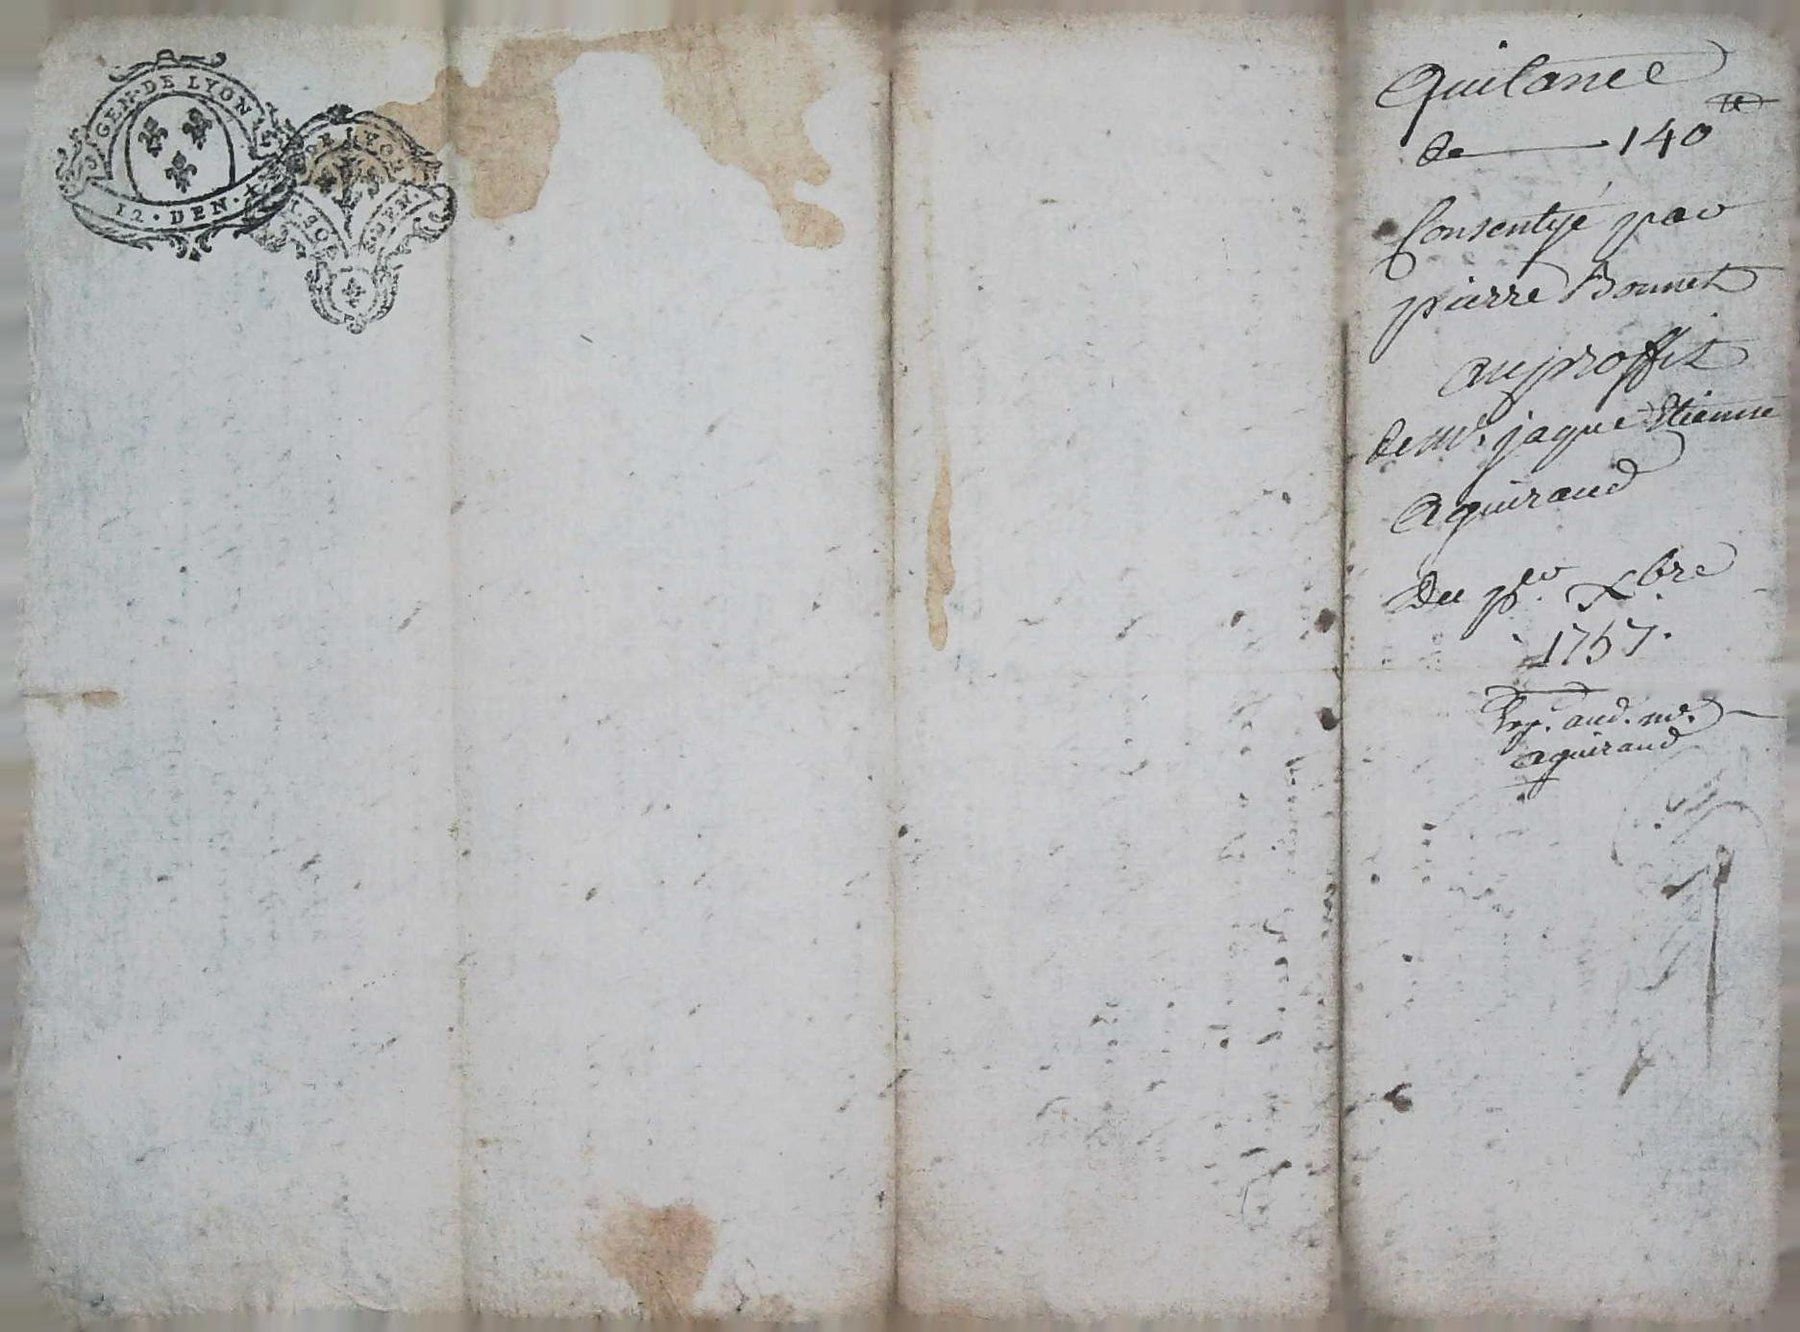 GEN·DE LYON
12·DEN·
Quitance
de 140 tt
Consentye par
pierre Bonnet
au proffit
de mr. jaque Etienne
Aguiraud
Du per. Xbre
1757.
aud. mr.
aguiraud